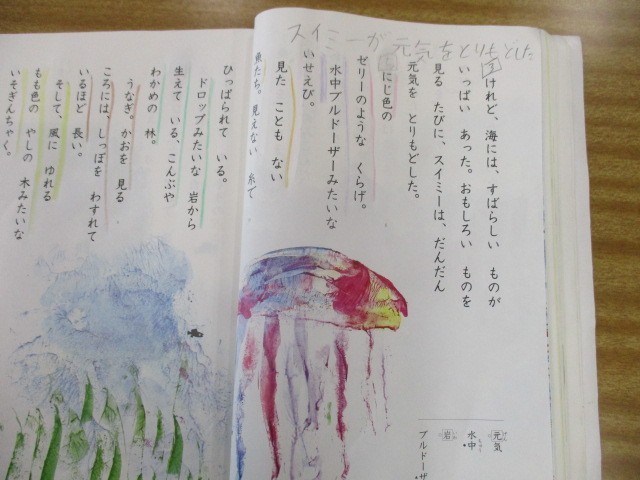 スイミーが元気をとりもどした
けれど、海には、すばらしい ものが
いっぱい あった。おもしろい ものを
見る たびに、スイミーは、だんだん
元気を とりもどした。
にじ色の
ゼリーのような くらげ。
水中ブルドーザーみたいな
いせえび。
見た ことも ない
魚たち。見えない 糸で
ひっぱられて いる。
ドロップみたいな 岩から
生えて いる、こんぶや
わかめの 林。
うなぎ。かおを 見る
ころには、しっぽを わすれて
いるほど 長い。
そして、風に ゆれる
もも色の やしの 木みたいな
いそぎんちゃく。
元気
水中
岩
ブルドーザー